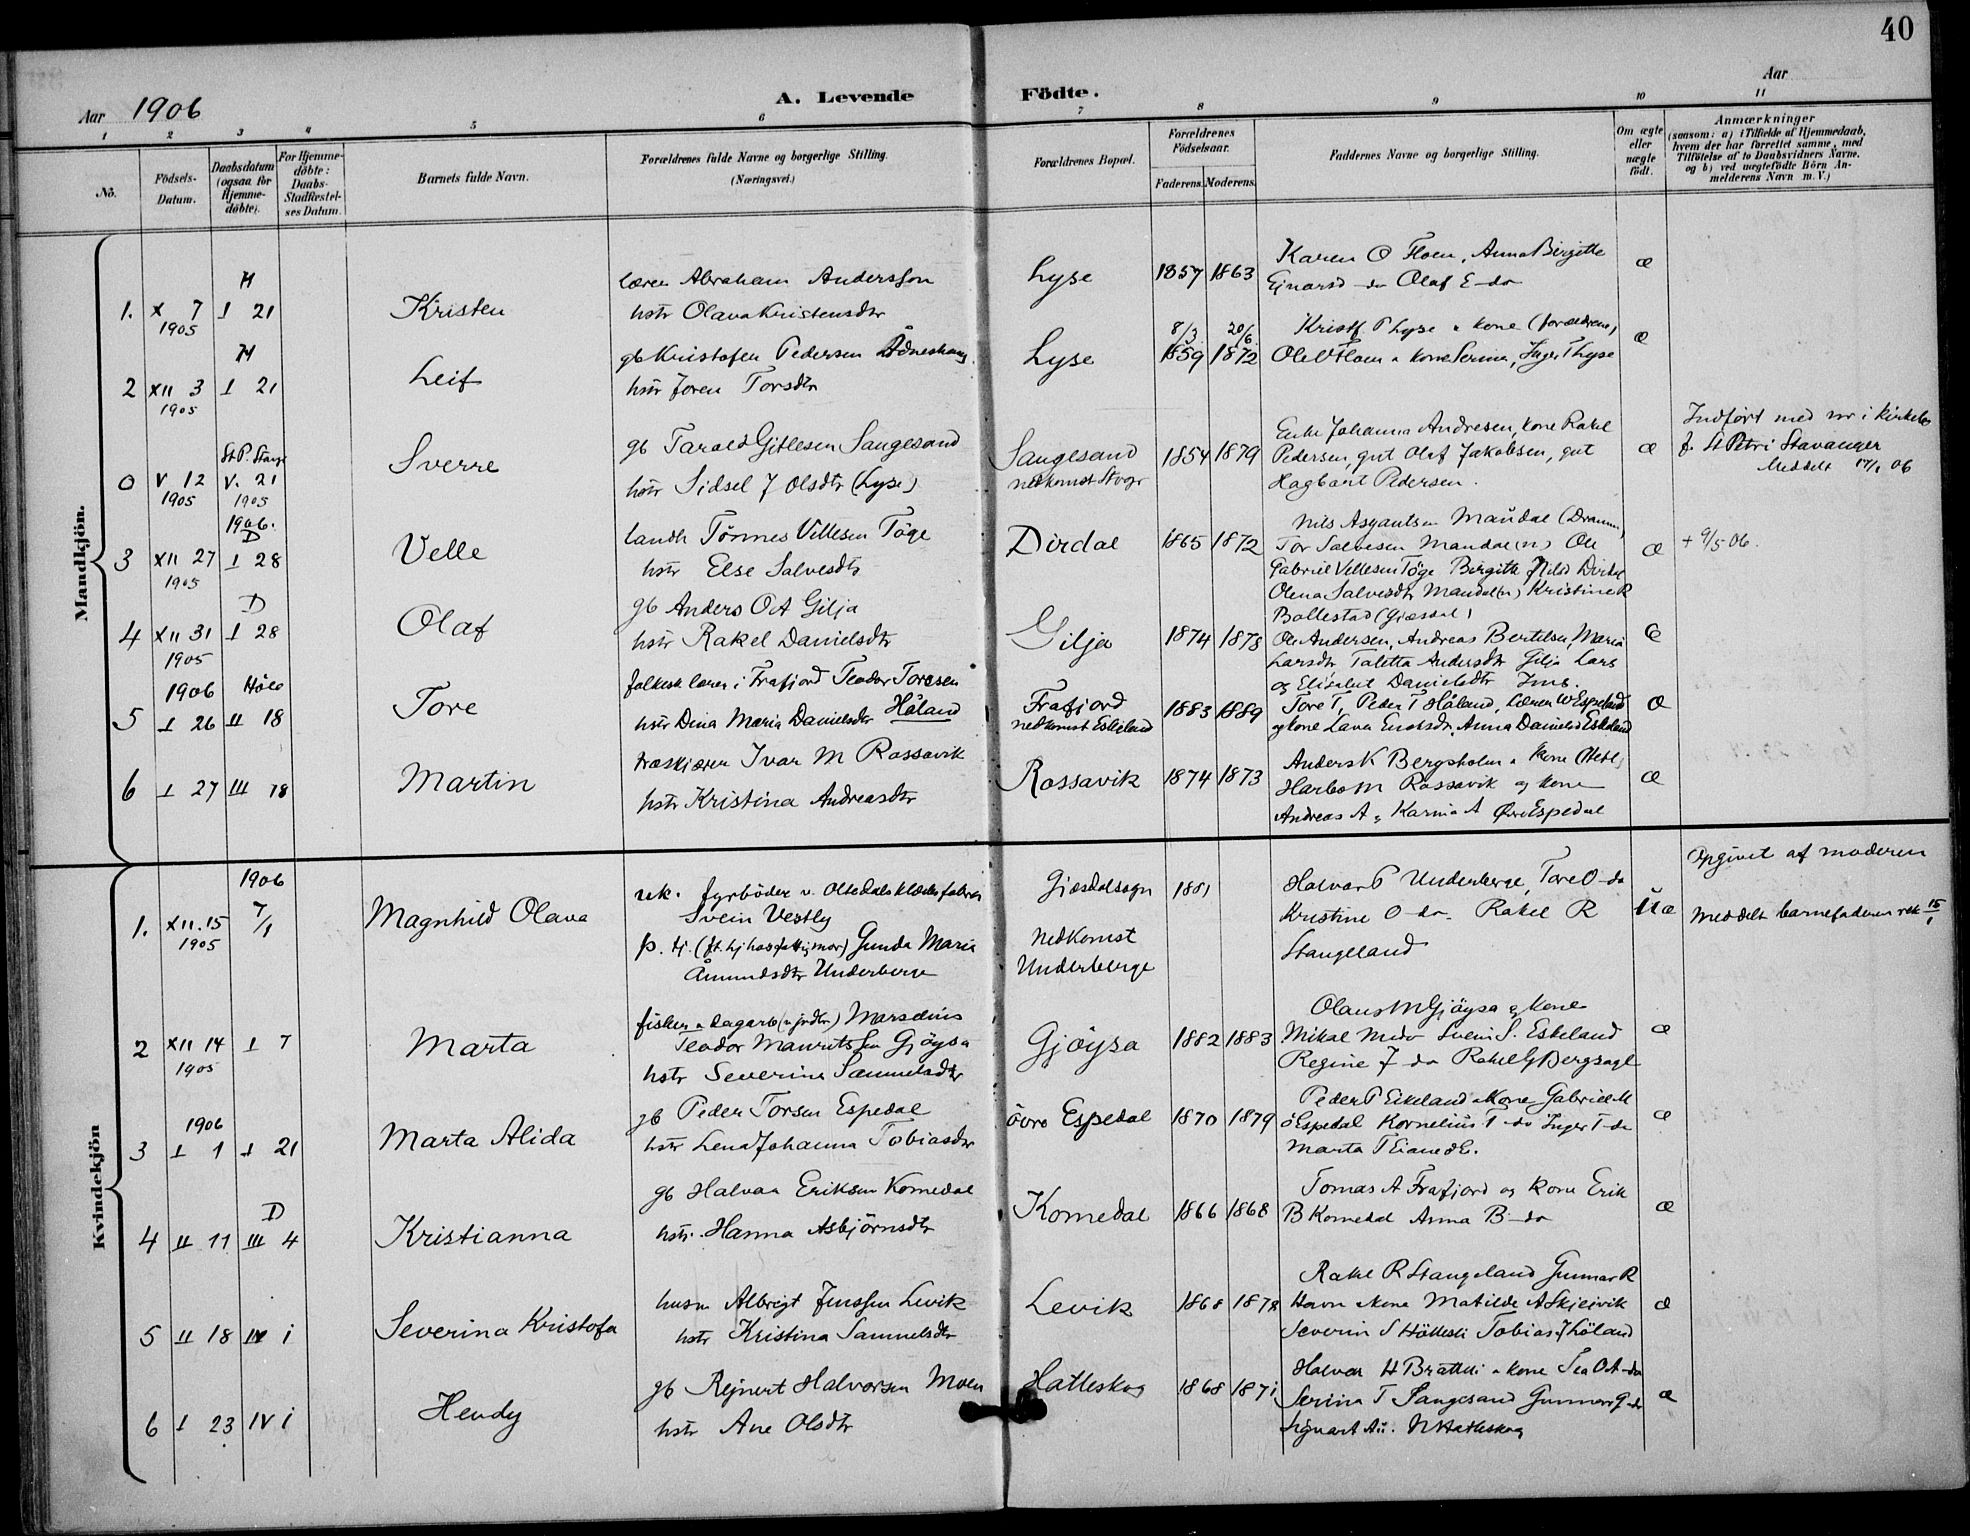 40
Aar 1906
A. Levende Födte.
Aar
1 2 3 4 5 6 7 8 9 10 11
No.
Födsels-Datum.
Daabsdatum (ogsaa for Hjemme-döbte).
For Hjemme-döbte: Daabs-Stadfæstel-ses Datum.
Barnets fulde Navn.
Forældrenes fulde Navne og borgerlige Stilling.
(Næringsvei.)
Forældrenes Bopæl.
Forældrenes Födselsaar.
Faderens. Moderens.
Faddernes Navne og borgerlige Stilling.
Om ægte eller uægte födt.
Anmærkninger
(saasom: a) i Tilfælde af Hjemmedaab,
hvem der har forrettet samme, med
Tilföielse af to Daabsvidners Navne.
og b) ved uægtefödte Börn An-
melderens Navn m. V.)
Mandkjön.
H
1. X 7 I 21
1905
Kristen
lærer Abraham Anderssen
hstr Olava Kristensdtr
Lyse
1857 1863
Karen O Floen, Anna Birgitte
Ejnarsd - do Olaf E - do
æ
H
2 XII 3 I 21
1905
Leif
gb Kristofen Pedersen Ådneshaug
hstr Joren Torsdtr
Lyse
8/3 20/6
1859 1872
Kristf P Lyse & kone (forældrene)
Ole O Floen & kone Serina, Inger T Lyse
æ
St P. Stavg
0 V 12 V. 21
1905 1905
Sverre
gb Tarald Gitlesen Sangesand
hstr Sidsel J Olsdtr (Lyse)
Sangesand
nedkomst Stvgr
1854 1879
Enke Johanna Andresen, kone Rakel
Pedersen, gut Olaf Jakobsen, gut
Hagbart Pedersen.
æ
Indfört med nr i kirkebo
f. St Petri Stavanger
Meddelt 17/1 06
1906.
D
3 XII 27 I 28
1905
Velle
landh Tönnes Villesen Töge
hstr Else Salvesdtr
Dirdal
1865 1872
Nils Asgautsen Maudal (Dramm)
Tor Salvesen Maudal (n) Ole
Gabriel Vellesen Töge Bergitte Nilsd Dirdal
Olena Salvesdtr Maudal (n) Kristine R
Ballestad (Gjæsdal)
æ
+ 9/5 06.
D
4 XII 31 I 28
1905
Olaf
gb Anders O A Gilja
hstr Rakel Danielsdtr
Gilja
1874 1878
Ole Andersen, Andreas Bertelsen, Maria
Larsdtr Taletta Andersdtr Gilja Lars
og Elisabet Danielsdtr Ims.
æ
1906 Höle
5 I 26 II 18
Tore
folkesk lærer i Frafjord Teodor Toresen
hstr Dina Maria Danielsdtr Håland
Frafjord
nedkomst Eskeland
1883 1889
Tore T, Peder T Håland, Lærer W Espeland
og kone Lava Eriksdtr, Anna Danielsd Eskeland
æ
6 I 27 III 18
Martin
træskjærer Ivar M Rossavik
hstr Kristina Andreasdtr
Rossavik
1874 1873
Anders K Bergsholm & kone (Hetl)
Harbo M Rossavik og kone
Andreas A & Karina A Øvre Espedal
æ
Kvindekjön
1906
1. XII. 15 7/1
1905
Magnhild Olava
uek. fyrböder v. Oltedals klædesfabrik
Svein Vestly
p. tj. (ft. hj hos fattig mor) Gunda Maria
Åmundsdtr Underberge
Gjæsdal sogn
nedkomst
Underberge
1881
Halvar P Underberge, Tore O - do
Kristine O - do. Rakel R
Stangeland
Uæ
Opgivet af moderen
Meddelt barnefaderen rek 15/1
2 XII 14 I 7
1905
Marta
fisker & dagarb (& jrdbr) Marselius
Teodor Mauritssen Gjöysa
hstr Severine Samuelsdtr
Gjöysa
1882 1883
Olaus M Gjöysa & kone
Mikal M - do Svein S. Eskeland
Regine J do Rakel G Bergsagel
æ
1906
3 I 1 I 21
Marta Alida
gb Peder Torsen Espedal
hstr Lena Johanna Tobiasdtr
övre Espedal
1870 1879
Peder P Eikeland & kone Gabriel M
ö Espedal Kornelius T - do Inger T - do
Marta T Eiane d E.
æ
D
4 II 11 III 4
Kristianna
gb Halvar Eriksen Komedal
hstr. Hanna Asbjörnsdtr
Komedal
1866 1868
Tomas A Frafjord og kone Erik
B Komedal Anna B - do
æ
5 II 18 IV i
Severina Kristofa
husm Albrigt Jenssen Levik
hstr Kristina Samuelsdtr
Levik
1868 1878
Rakel R Stangeland Gunnar R
Havn & kone Matilde A Skjeivik
Severin S Hötteli Tobias J Löland
æ
6 I 23 IV i
Hendy
gb Rejnert Halvorsen Moen
hstr Ane Olsdtr
Hatleskog
1868 1871
Halvar H Bratteli & kone Tea O A - do
Serina T Sangesand Gunnar G - do
Sigvart N Hatleskog
æ